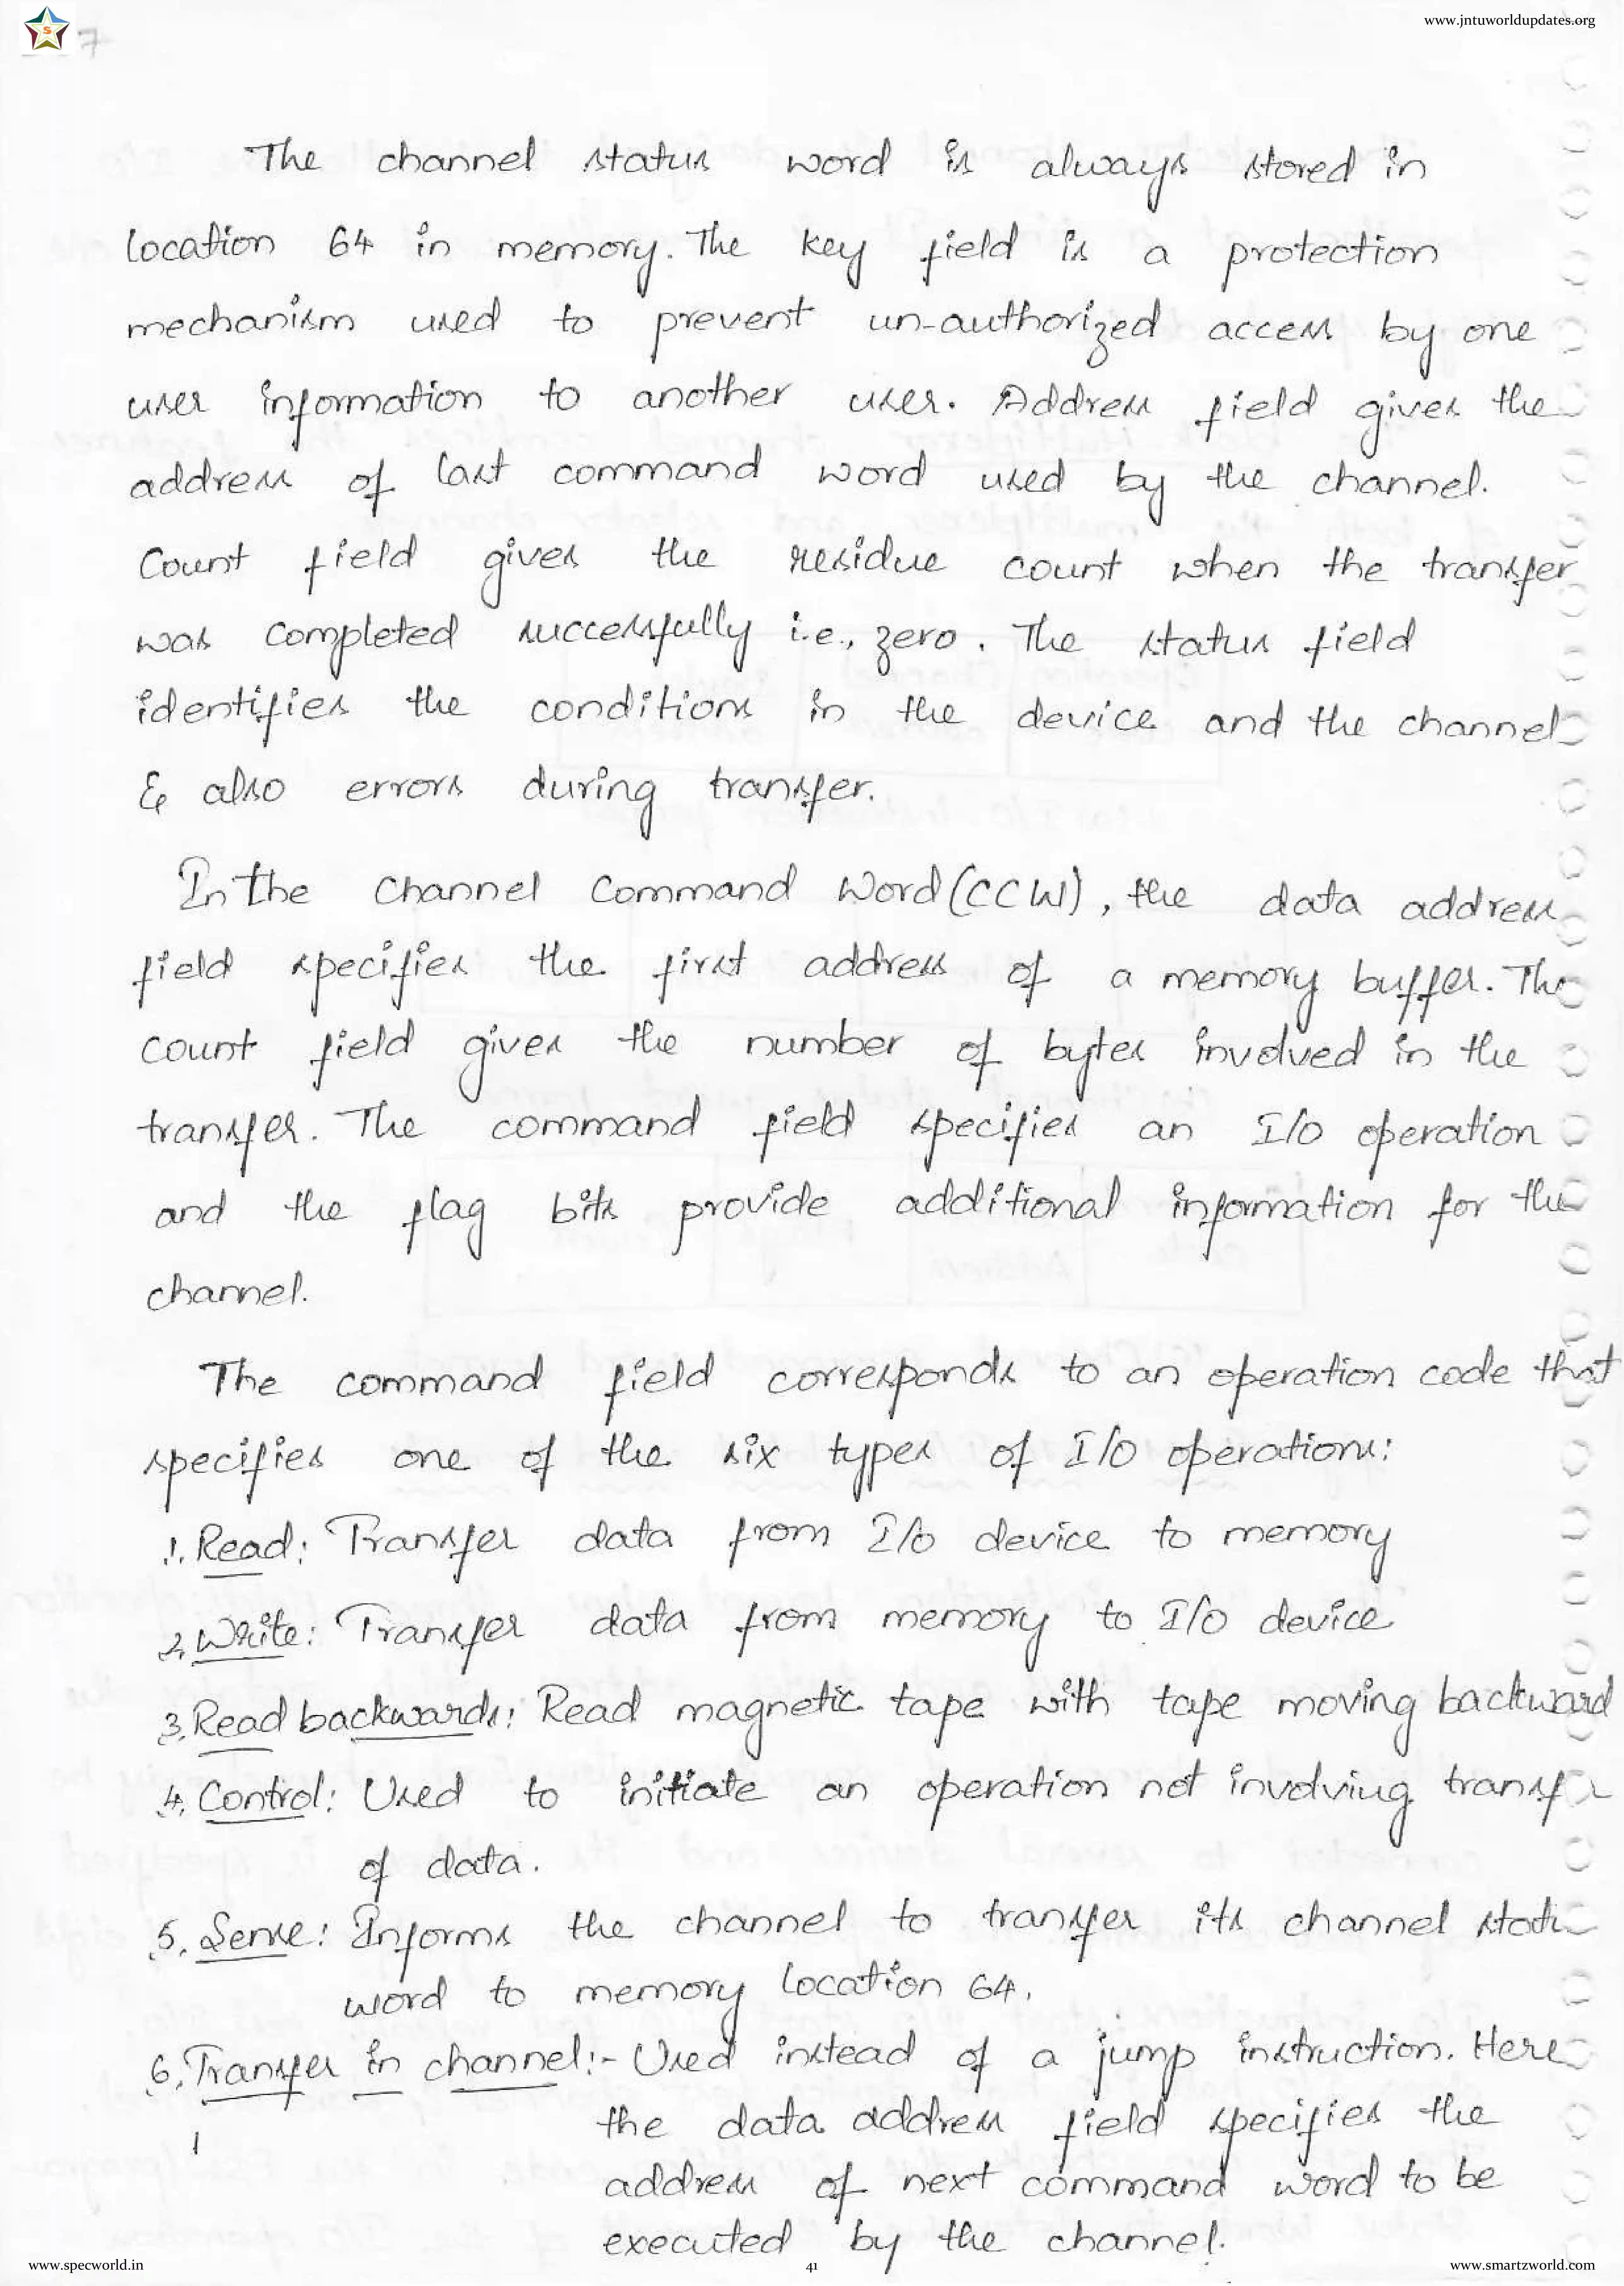 www.jntuworldupdates.org
S
7
The channel status word is always stored in
location 64 in memory. The key field is a protection
mechanism used to prevent un-authorized access by one
user information to another user. Address field gives the
address of last command word used by the channel.
Count field gives the residue count when the transfer
was completed successfully i.e., zero. The status field
identifies the conditions in the device and the channel
& also errors during transfer.
In the Channel Command Word (CCW), the data address
field specifies the first address of a memory buffer. The
count field gives the number of bytes involved in the
transfer. The command field specifies an I/O operation
and the flag bits provide additional information for the
channel.
The command field corresponds to an operation code that
specifies one of the six types of I/O operations:
1. Read: Transfer data from I/O device to memory
2. Write: Transfer data from memory to I/O device
3. Read backwards: Read magnetic tape with tape moving backward
4. Control: Used to initiate an operation not involving transf
of data.
5. Sense: Informs the channel to transfer its channel statu
word to memory location 64.
6. Transfer in channel:- Used instead of a jump instruction. Here
the data address field specifies the
address of next command word to be
executed by the channel.
www.specworld.in
41
www.smartzworld.com